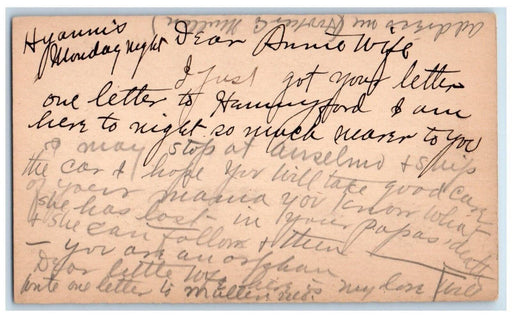 Hyannis
Monday night
Address me Mullen
Dear Annie Wife
I just got your letter
one letter to Hannyford I am
here to night so much nearer to you
I may stop at Anselmo & ship
the car & hope you will take good care
of your mama you know what
she has lost in your papas death
& she can follow & then
— you are an orphan
Dear little is my love
write one letter to Mullen Neb.